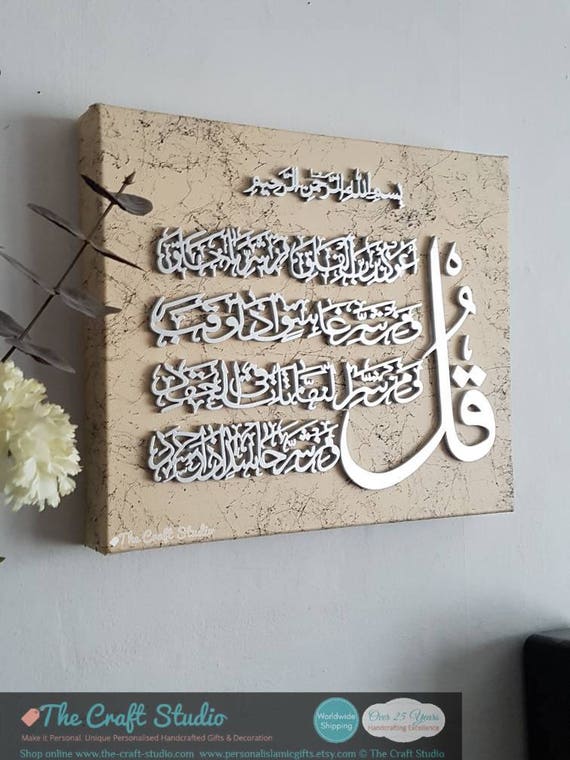 بسم الله الرحمن الرحيم
قل
أعوذ برب الفلق من شر ما خلق
ومن شر غاسق إذا وقب
ومن شر النفاثات في العقد
ومن شر حاسد إذا حسد
The Craft Studio
The Craft Studio
Make it Personal. Unique Personalised Handcrafted Gifts & Decoration
Shop online www.the-craft-studio.com www.personalislamicgifts.etsy.com © The Craft Studio
Worldwide Shipping
Over 25 Years
Handcrafting Excellence